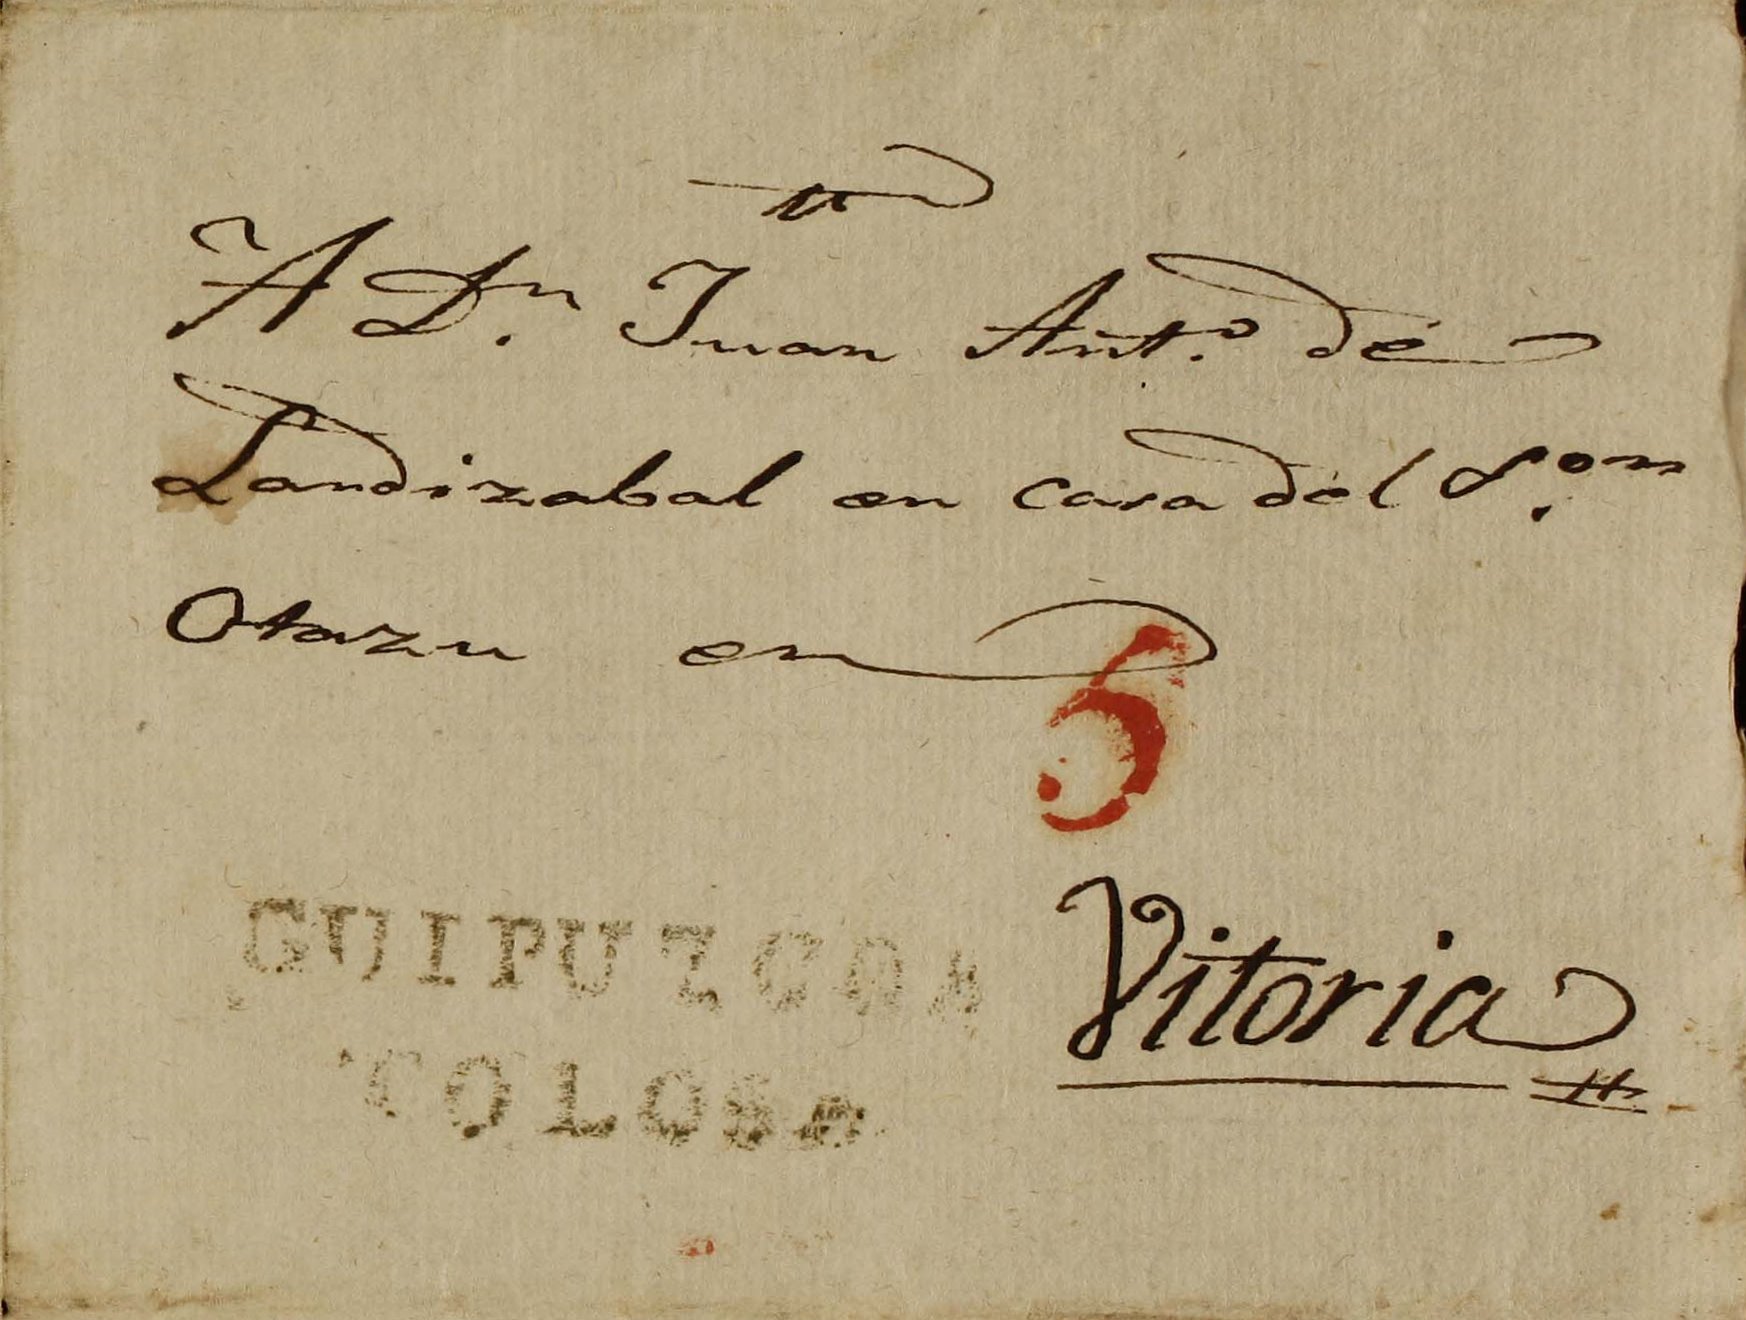 A Dn. Juan Anto. de
Landizabal en casa del S.or
Otazu en
5
Vitoria
GUIPUZCOA
TOLOSA